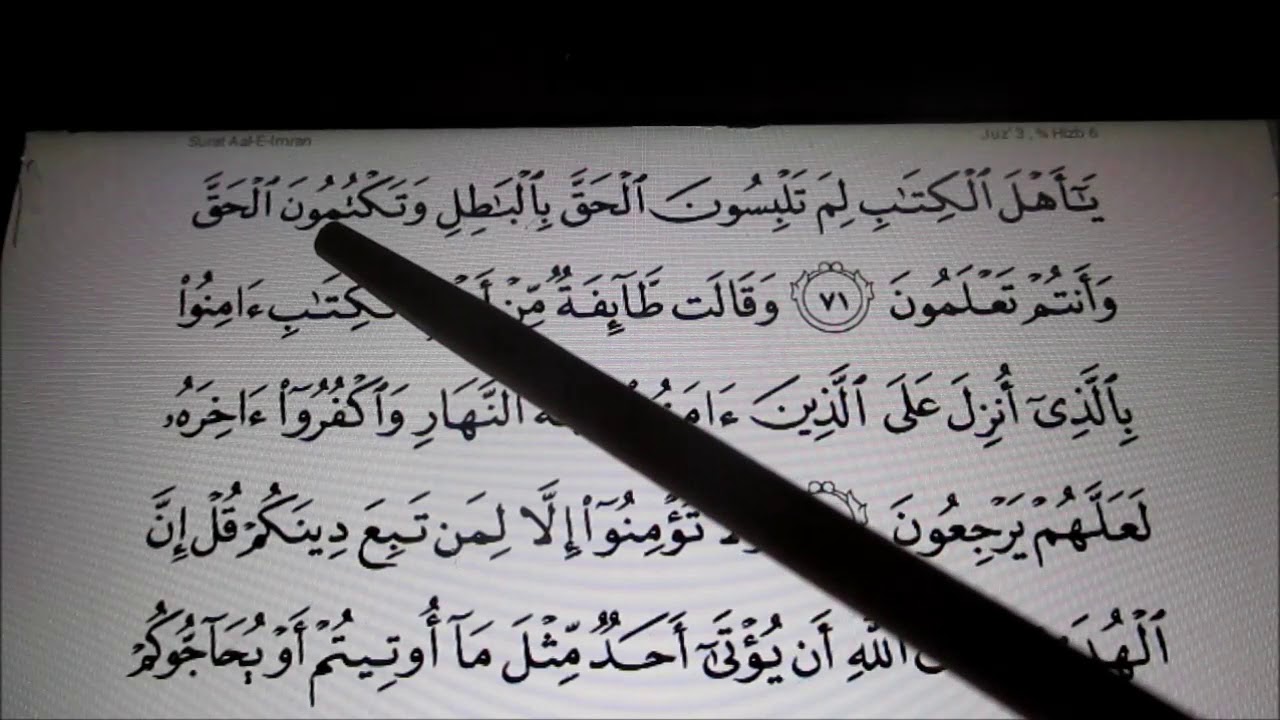 Surat Aal-E-Imran Juz' 3 , ¾ Hizb 6
يَٰٓأَهْلَ ٱلْكِتَٰبِ لِمَ تَلْبِسُونَ ٱلْحَقَّ بِٱلْبَٰطِلِ وَتَكْتُمُونَ ٱلْحَقَّ
وَأَنتُمْ تَعْلَمُونَ ٧١ وَقَالَت طَّآئِفَةٌ مِّنْ ءَامِنُوا۟
بِٱلَّذِىٓ أُنزِلَ عَلَى ٱلَّذِينَ ٱلنَّهَارِ وَٱكْفُرُوٓا۟ ءَاخِرَهُۥ
لَعَلَّهُمْ يَرْجِعُونَ تُؤْمِنُوٓا۟ إِلَّا لِمَن تَبِعَ دِينَكُمْ قُلْ إِنَّ
ٱللَّهِ أَن يُؤْتَىٰٓ أَحَدٌ مِّثْلَ مَآ أُوتِيتُمْ أَوْ يُحَآجُّوكُمْ